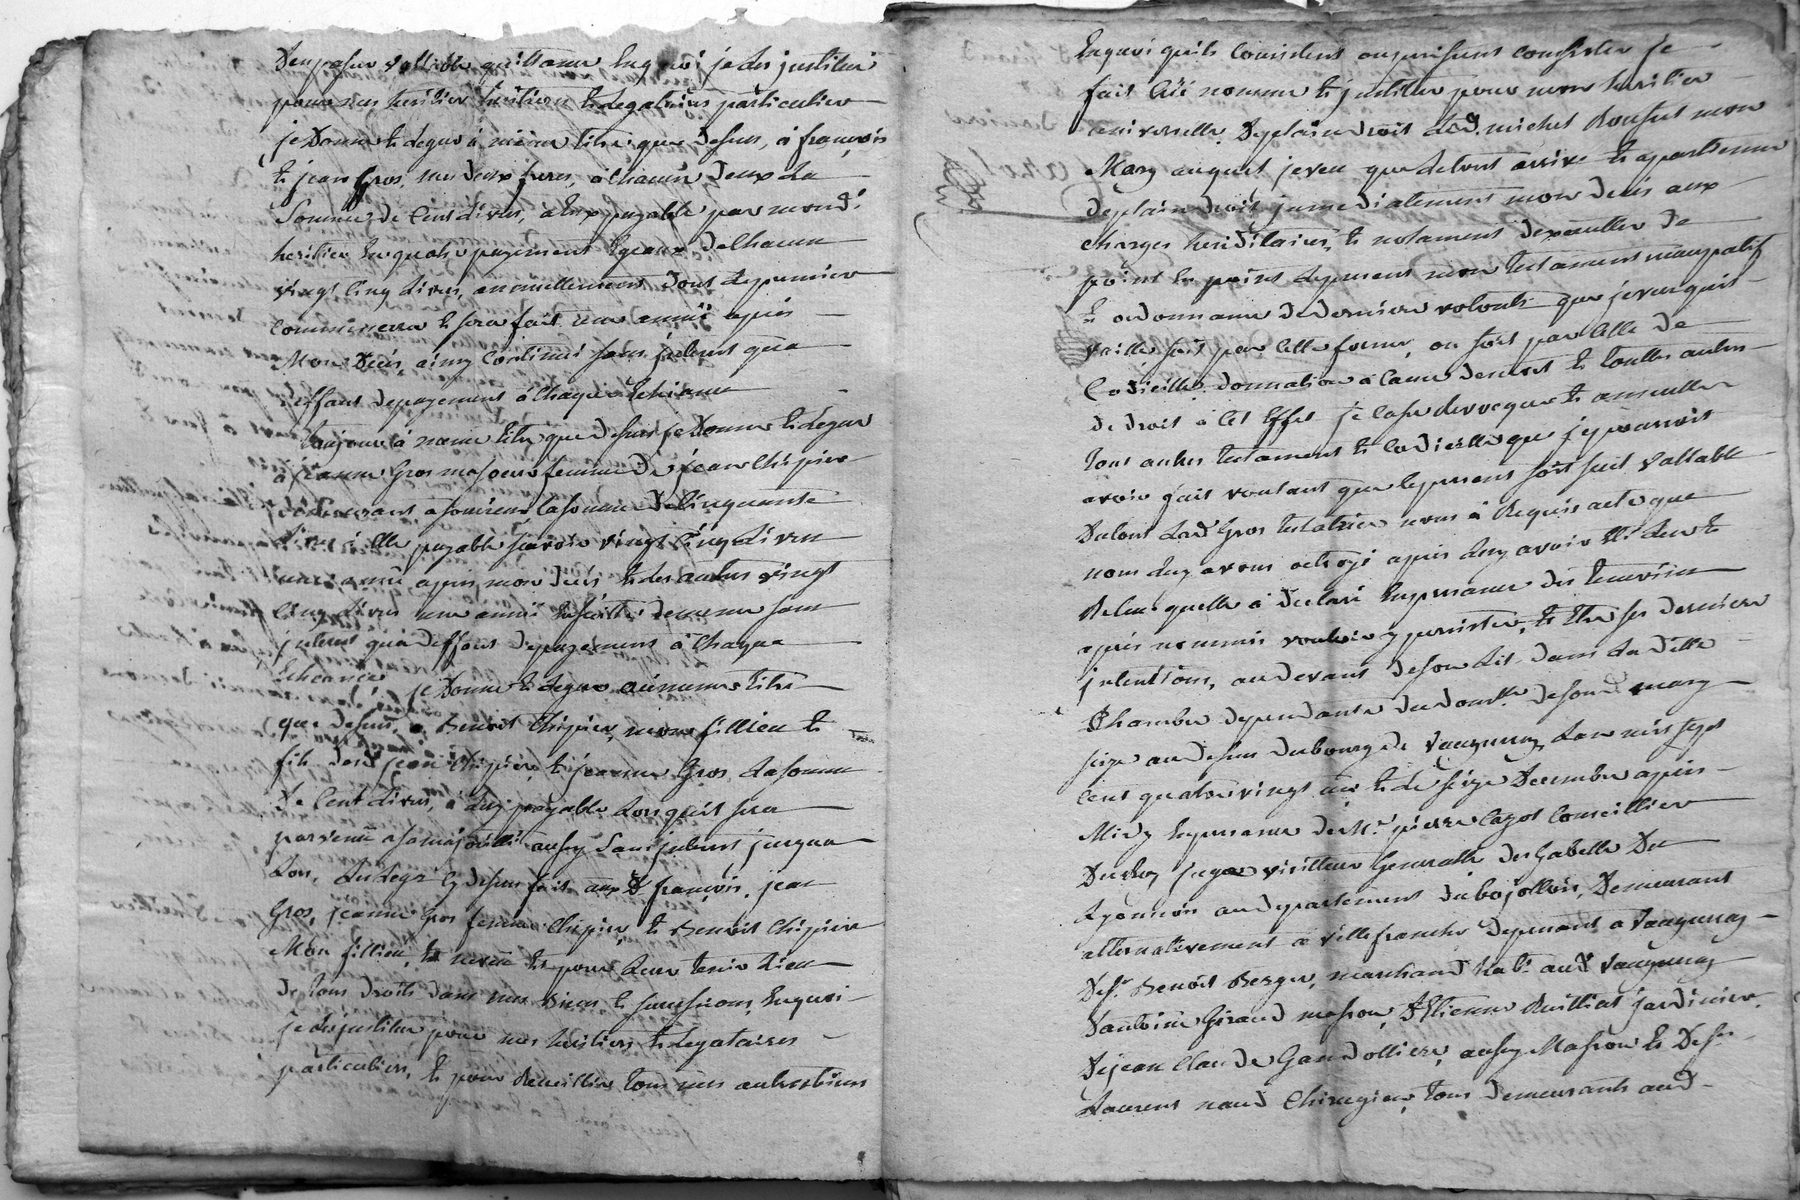 payable quittance Enquoi je les justitue
pour mes heritiers & Legataires particuliers
je Donne & Legue à même titre que Dessus, à françois
& jean Gros, mes deux freres, à Chacun Deux La
Somme de Cent Livres, à Eux payable par mondi
heritier En quatre payements Egaux De Chacun
vingt Cinq Livres, annuellement Dont Le premier
Commencera & sera fait une année après
Mon Decès, ainsy Continué sans jnterest qua
deffaut de payement à Chaque Echeance
Toujours à même titre que Dessus je Donne & Legue
à jeanne Gros ma soeur femme De jean Chipier
La somme De Cinquante
Livres à Elle payable scavoir vingt Cinq Livres
une année après mon Decès & Les autres vingt
Cinq Livres une année Ensuitte De meme sans
jnterest qua Deffaut De payement à Chaque
Echeance, je Donne & Legue au meme titre
que Dessus, à Benoit Chipier, mon fillieu &
fils Dud jean Chipier & jeanne Gros La somme
De Cent Livres, à Luy payable Lorsquil sera
parvenu a sa majorité aussy Sans jnterest jusqua
Lors, Au Legs Cy Dessus fait auxd françois, jean
Gros, jeanne Gros femme Chipier & Benoit Chipier
Mon fillieu, & neveu & pour Leur tenir Lieu
De tous droits dans mes Biens & successions, Enquoi
je Les justitue pour mes heritiers & Legataires
particuliers, & pour Recueillir tous mes autres biens
Enquoi quils Consistent ou puissent Consister je
fait Créé nomme & justitue pour mon heritier
universelle De plain Droit Led. michel Bonset mon
Mary auquel je veu que Le tout arrive & apartienne
De plain Droit jmmediatement mon Decès aux
Charges heriditaires, & notament Dexecutter De
point En point Le present mon testament nuncupatif
& ordonnance De Derniere volonté que je veu quil
vaille soit par Cette forme, ou soit par Celle De
Codicille, Donnation à Cause De mort & touttes autres
De droit à Cet Effet je Casse Revoque & annulle
tous autres testament & Codicille que je pourrois
avoir fait voulant que Le present soit seul vallable
Dutout Lad Gros testatrice nous à Requis acte que
nous Luy avons octroyé après Luy avoir Eté Leu &
Releu quelle à Declaré En presence Des temoins
après nommés vouloir y persister, & Etre ses Dernieres
jntentions, au devant de son Lit Dans La Ditte
Chambre Dependante Du Domle. De son d mary
size au Dessus Dubourg De Vaugneray Lan mil sept
Cent quatre vingt un & Le seize Decembre après
Midy En presence De Mr. pierre Cazot Conseillier
Du Roy juge visitteur Generalle Des Gabelle Du
Lyonnois au Departement Dubojollois, Demeurant
alternativement à villefranche De present a Vaugneray
De sr. Benoit Berger, marchand habt. aud Vaugneray
Dantoine Giraud masson, Detienne Ruilliat jardinier
De jean Claude Gandolliere, aussy Masson & De sr.
Laurent naud Chirugien, tous Demeurants aud